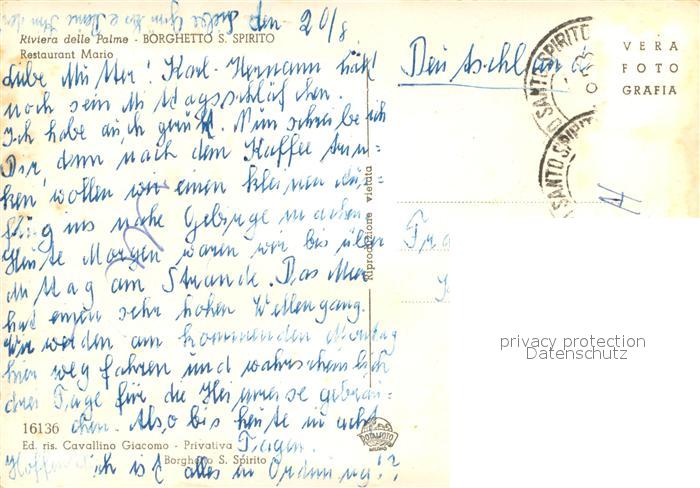 den 20/8
Riviera delle Palme - BORGHETTO S. SPIRITO
Restaurant Mario
Liebe Mutter! Karl-Hermann hält
noch sein Mittagsschläfchen.
Ich habe auch geruht. Nun schreibe ich
Dir, denn nach dem Kaffee trin-
ken wollen wir einen kleinen Aus-
flug ins nahe Gebirge machen.
Heute Morgen waren wir bis über
Mittag am Strande. Das Meer
hat einen sehr hohen Wellengang.
Wir werden am kommenden Montag
hier weg fahren und wahrscheinlich
drei Tage für die Heimreise gebrau-
chen. Also bis heute in acht
Tagen.
Hoffentlich ist alles in Ordnung!?
16136
Ed. ris. Cavallino Giacomo - Privativa
Borghetto S. Spirito
Riproduzione vietata
ROTALFOTO
MILANO
Deutschland
SANTO SPIRITO
SANTO SPIRITO
VERA
FOTO
GRAFIA
Fra
privacy protection
Datenschutz